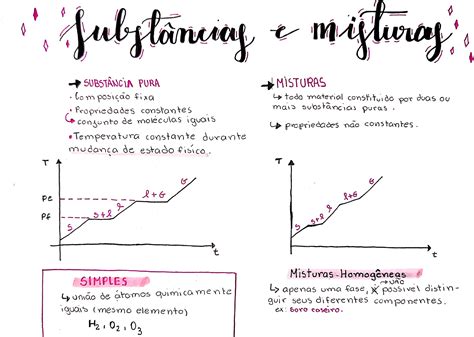 Substâncias e misturas
→ SUBSTÂNCIA PURA
• Composição fixa
• Propriedades constantes
↳ conjunto de moléculas iguais
• Temperatura constante durante
mudança de estado físico.
T
PE
PF
S
S+L
L
L+G
G
t
SIMPLES
↳ união de átomos quimicamente
iguais (mesmo elemento)
H₂, O₂, O₃
→ MISTURAS
↳ todo material constituído por duas ou
mais substâncias puras.
↳ propriedades não constantes.
T
S
S+L
L
L+G
G
t
Misturas Homogêneas
↳ apenas uma fase, é possível distin-
→ não
guir seus diferentes componentes.
ex: Soro caseiro.